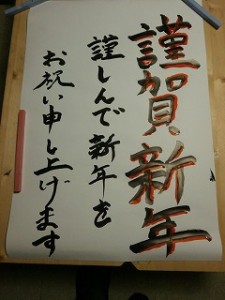 謹賀新年
謹しんで新年を
お祝い申し上げます